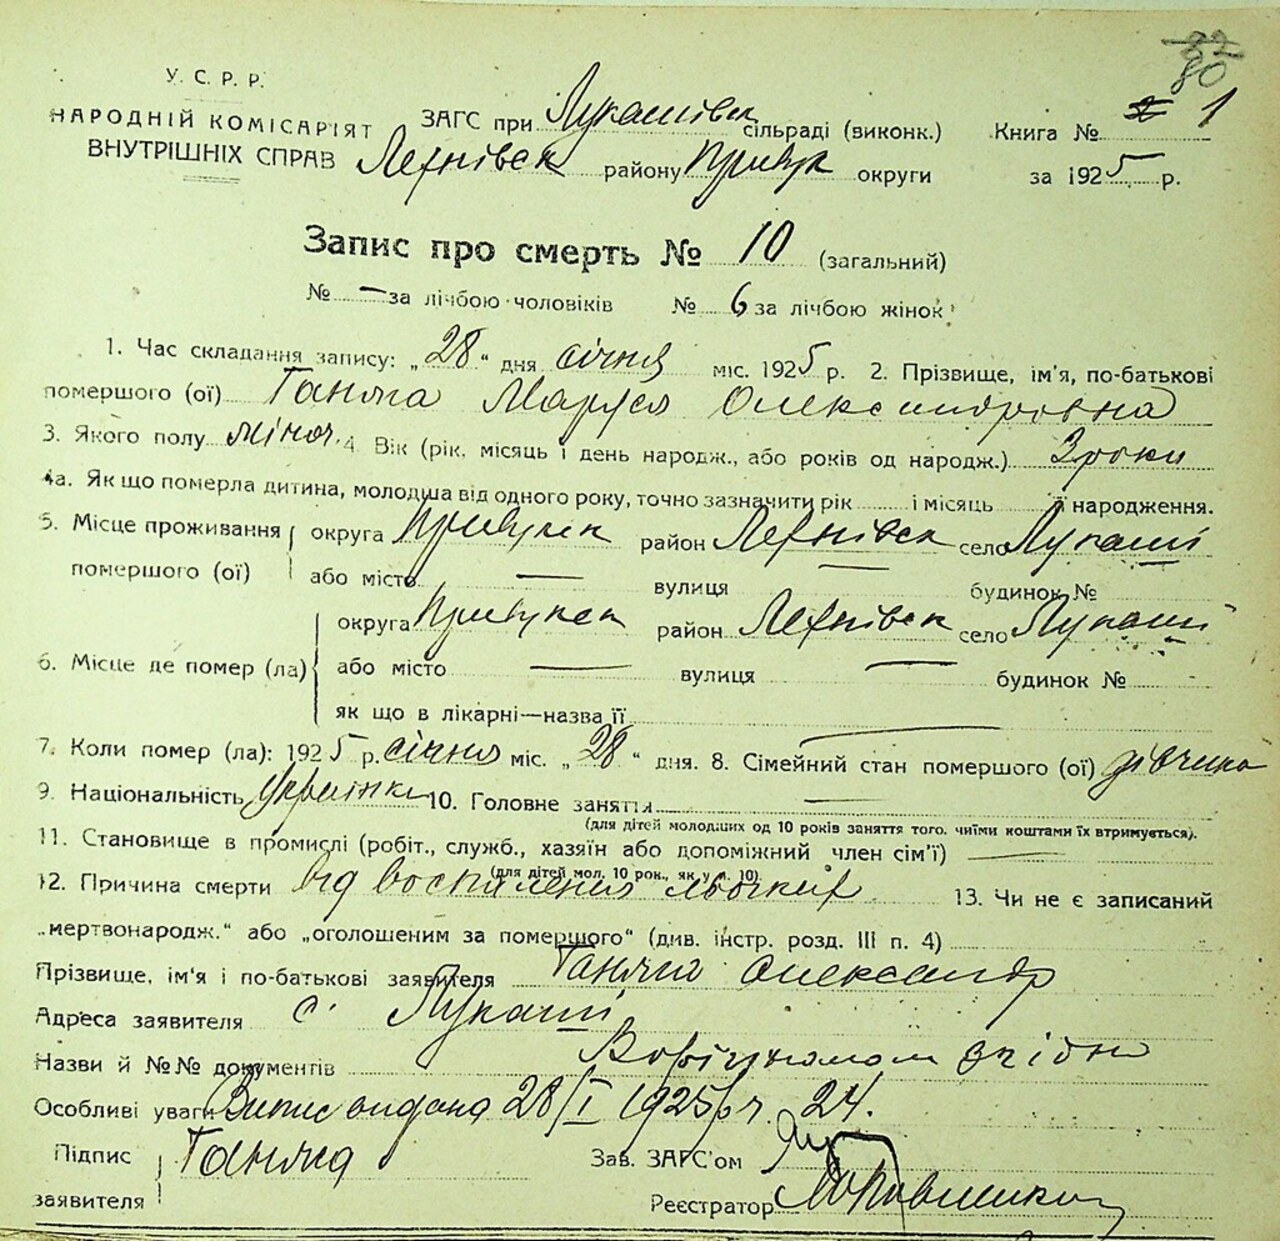 80
У. С. Р. Р.
НАРОДНІЙ КОМІСАРІЯТ
ВНУТРІШНІХ СПРАВ
ЗАГС при Лукашівск сільраді (виконк.) Книга № 1
району Прилук округи за 1925 р.
Запис про смерть № 10 (загальний)
№ — за лічбою чоловіків № 6 за лічбою жінок
1. Час складання запису: „28“ дня січня міс. 1925 р. 2. Прізвище, ім'я, по-батькові
помершого (ої) Ганжа Маруся Олександровна
3. Якого полу жіноч. 4. Вік (рік, місяць і день народж., або років од народж.) 3 роки
4а. Як що померла дитина, молодша від одного року, точно зазначити рік і місяць її народження.
5. Місце проживання округа Прилукск район село Лукаші
помершого (ої) або місто — вулиця — будинок №
округа Прилукск район село Лукаші
6. Місце де помер (ла) або місто — вулиця — будинок №
як що в лікарні—назва її —
7. Коли помер (ла): 1925 р. січня міс. „28“ дня. 8. Сімейний стан помершого (ої) дівчина
9. Національність Українка 10. Головне заняття —
(для дітей молодших од 10 років заняття того, чиїми коштами їх втримується).
11. Становище в промислі (робіт., служб., хазяїн або допоміжний член сім'ї) —
(для дітей мол. 10 рок., як у п. 10).
12. Причина смерти від воспаления льогких 13. Чи не є записаний
„мертвонародж.“ або „оголошеним за помершого“ (див. інстр. розд. III п. 4)
Прізвище, ім'я і по-батькові заявителя Ганжа Олександр
Адреса заявителя с. Лукаші
Назви й №№ документів
Особливі уваги Випис видана 28/I 1925 р. ч. 24.
Підпис заявителя Ганжа
Зав. ЗАГС'ом
Реєстратор